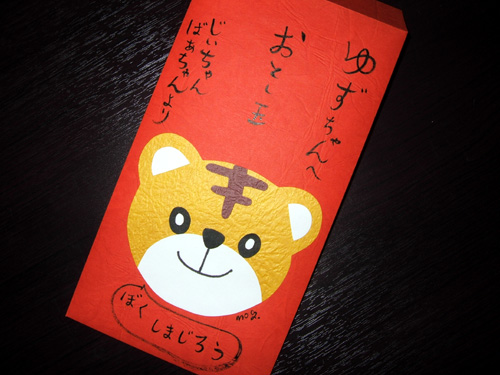 ゆずちゃんへ
おとし玉
じぃちゃん
ばぁちゃんより
ぼく
しまじろう